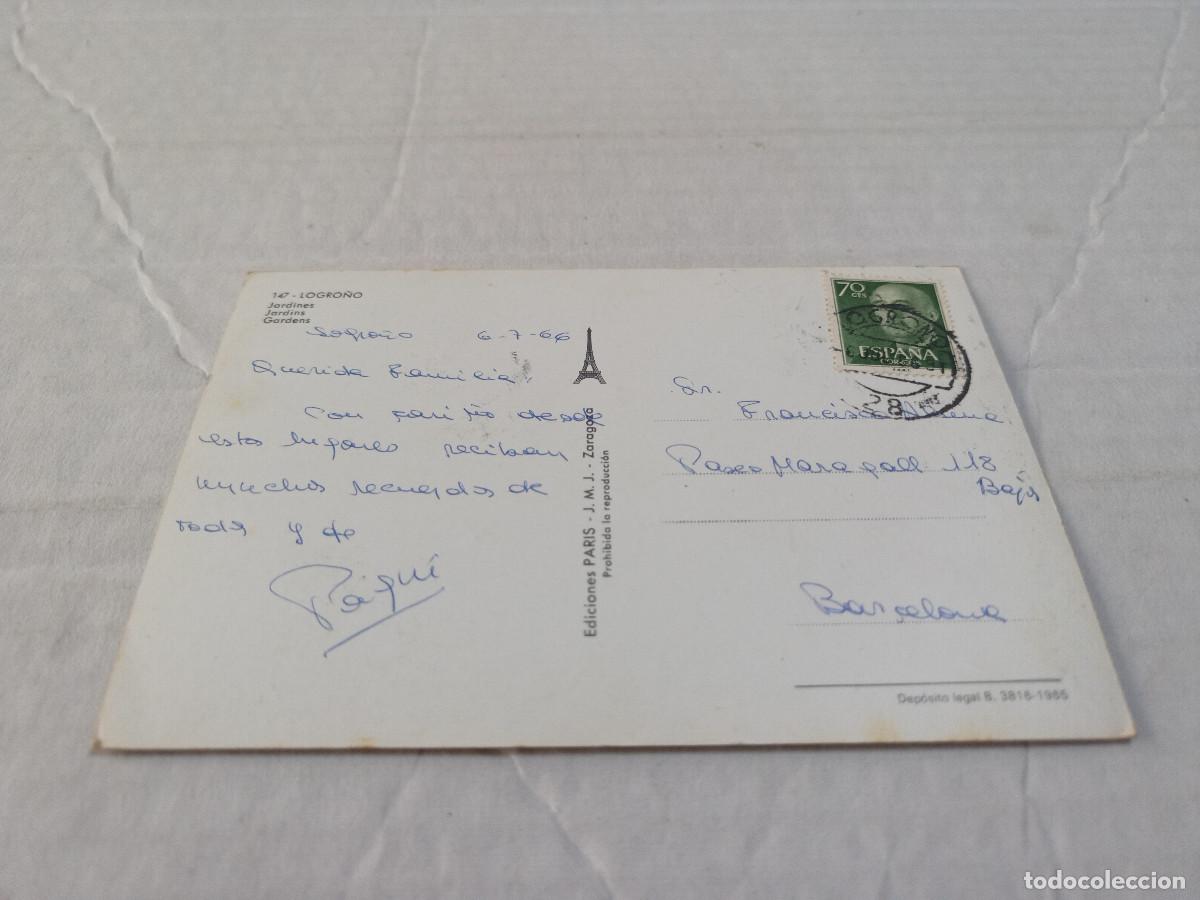 147 - LOGROÑO
Jardines
Jardins
Gardens
Logroño 6-7-66
Querida Familia.
Con cariño desde
estos lugares reciban
muchos recuerdos de
todos y de
Paqui
Ediciones PARIS - J. M. J. - Zaragoza
Prohibida la reproducción
70
CTS
ESPAÑA
CORREOS
LOGROÑO
28
Sr.
Francisco
Paseo Maragall 118
Bajos
Barcelona
Depósito legal B. 3816-1965
todocoleccion